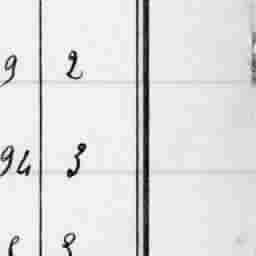 9 2
94 3